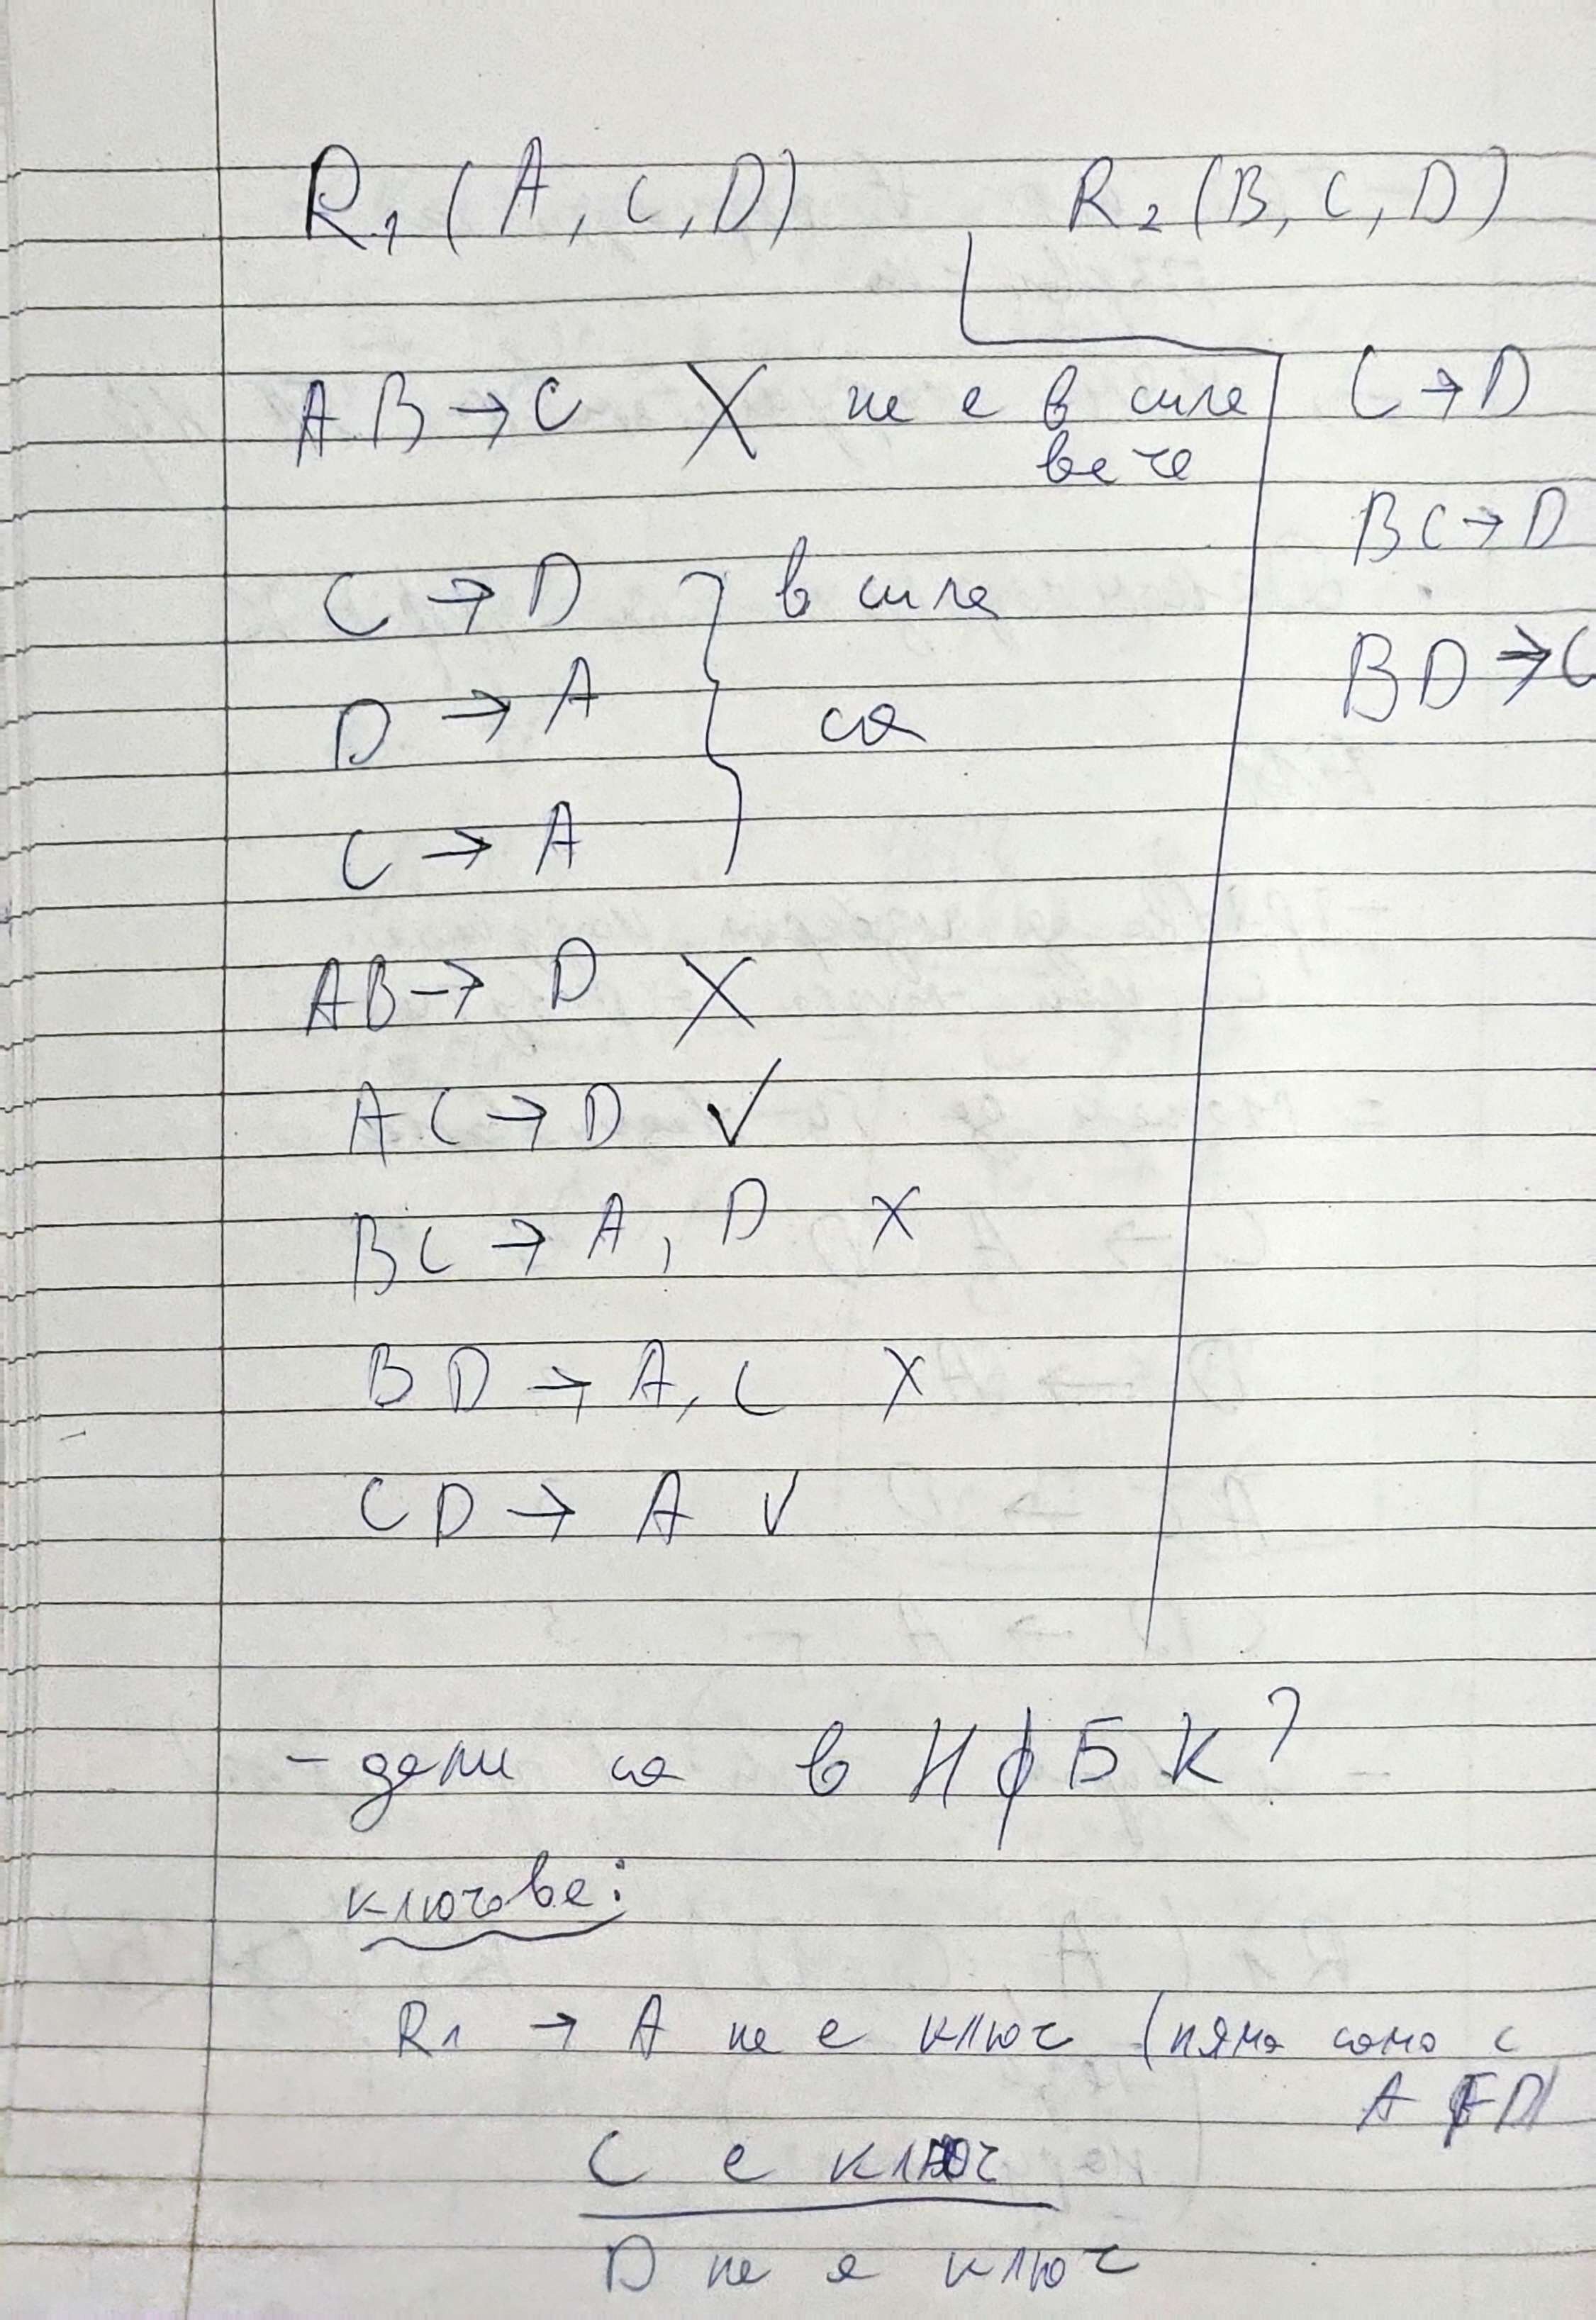 R₁ (A, C, D) R₂ (B, C, D)
AB → C X не е в сила вече
C → D в сила са
D → A
C → A
AB → D X
AC → D ✓
BC → A, D X
BD → A, C X
CD → A ✓
C → D
BC → D
BD → C
- дали са в НФБК?
ключове:
R1 → A не е ключ (няма само с
A FD)
C е ключ
D не е ключ